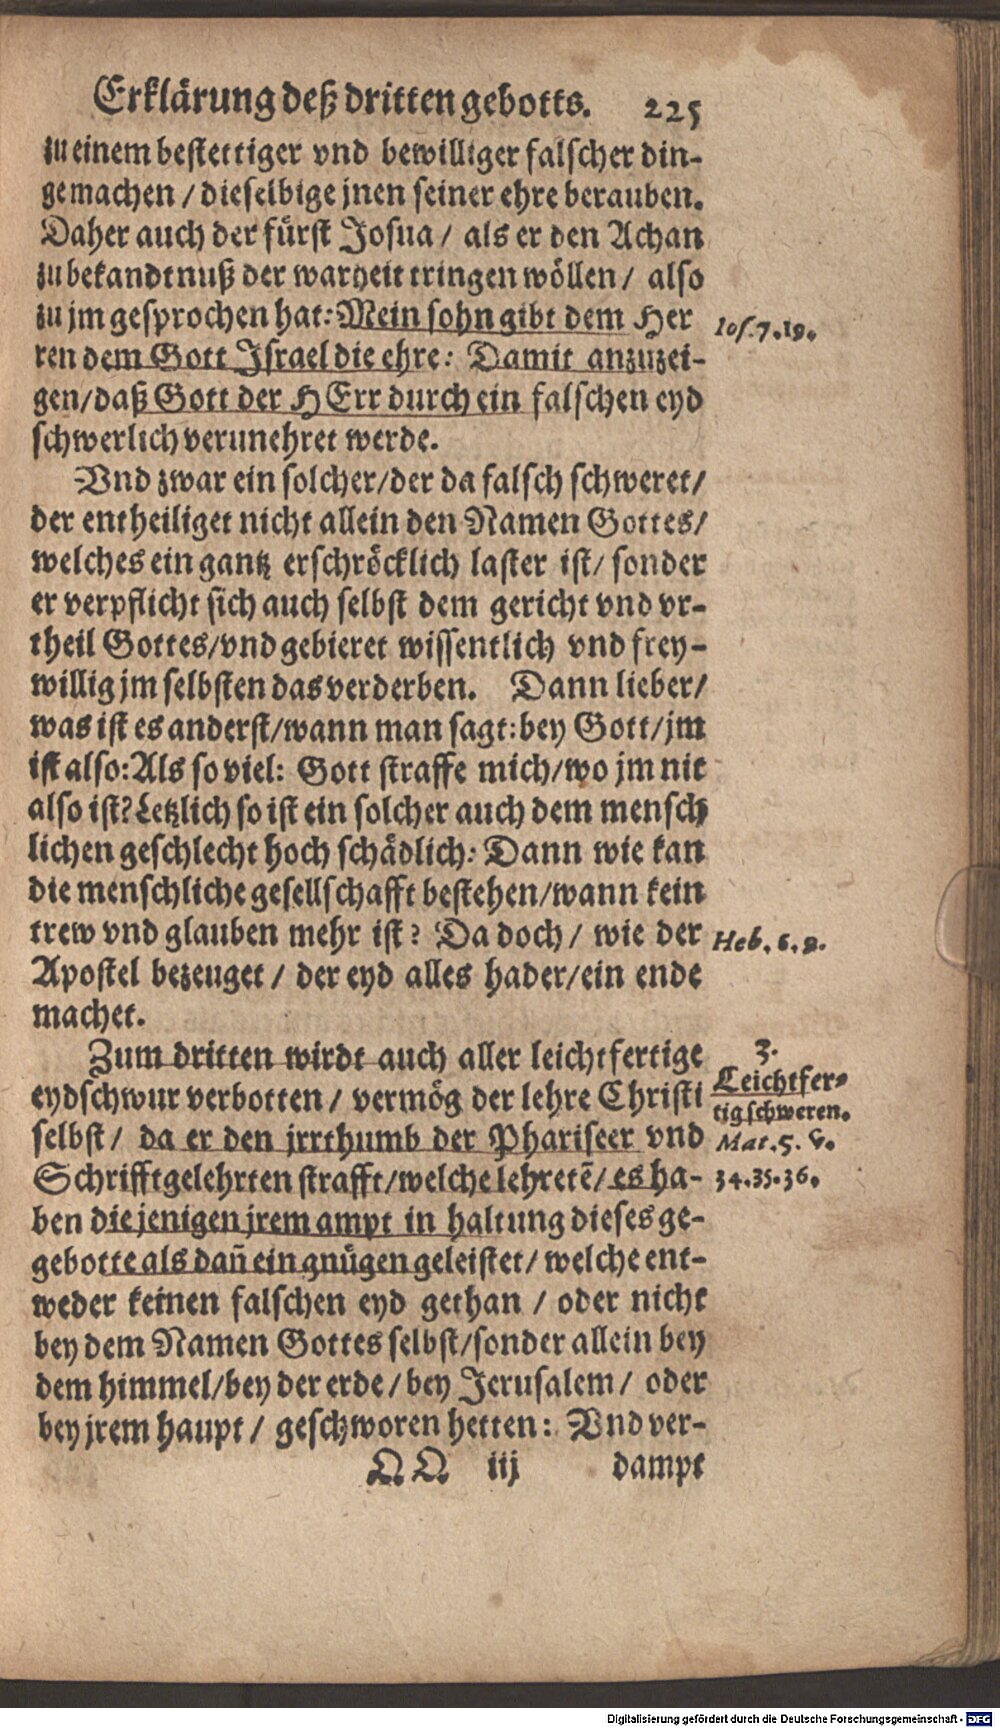 Erklärung deß dritten gebotts. 225
zu einem bestettiger vnd bewilliger falscher din-
ge machen / dieselbige jnen seiner ehre berauben.
Daher auch der fürst Josua / als er den Achan
zu bekandtnuß der warheit tringen wöllen / also
zu jm gesprochen hat: Mein sohn gibt dem Her
ren dem Gott Israel die ehre: Damit anzuzei-
gen / daß Gott der HErr durch ein falschen eyd
schwerlich verunehret werde.
Ios. 7. 19.
Vnd zwar ein solcher / der da falsch schweret /
der entheiliget nicht allein den Namen Gottes /
welches ein gantz erschröcklich laster ist / sonder
er verpflicht sich auch selbst dem gericht vnd vr-
theil Gottes / vnd gebieret wissentlich vnd frey-
willig jm selbsten das verderben. Dann lieber /
was ist es anderst / wann man sagt: bey Gott / jm
ist also: Als so viel: Gott straffe mich / wo jm nit
also ist? Letzlich so ist ein solcher auch dem mensch
lichen geschlecht hoch schädlich: Dann wie kan
die menschliche gesellschafft bestehen / wann kein
trew vnd glauben mehr ist? Da doch / wie der
Apostel bezeuget / der eyd alles hader / ein ende
machet.
Heb. 6. 9.
Zum dritten wirdt auch aller leichtfertige
eydschwur verbotten / vermög der lehre Christi
selbst / da er den jrrthumb der Phariseer vnd
Schrifftgelehrten strafft / welche lehretē / es ha-
ben diejenigen jrem ampt in haltung dieses ge-
gebotte als dañ ein gnügen geleistet / welche ent-
weder keinen falschen eyd gethan / oder nicht
bey dem Namen Gottes selbst / sonder allein bey
dem himmel / bey der erde / bey Jerusalem / oder
bey jrem haupt / geschworen hetten: Vnd ver-
3.
Leichtfer-
tig schweren.
Mat. 5. v.
34. 35. 36.
QQ iij dampt
Digitalisierung gefördert durch die Deutsche Forschungsgemeinschaft - DFG